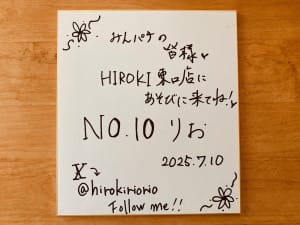 みんパチの
皆様
HIROKI 東口店に
あそびに来てね!
NO.10 りお
2025.7.10
X
@hirokiriorio
Follow me!!